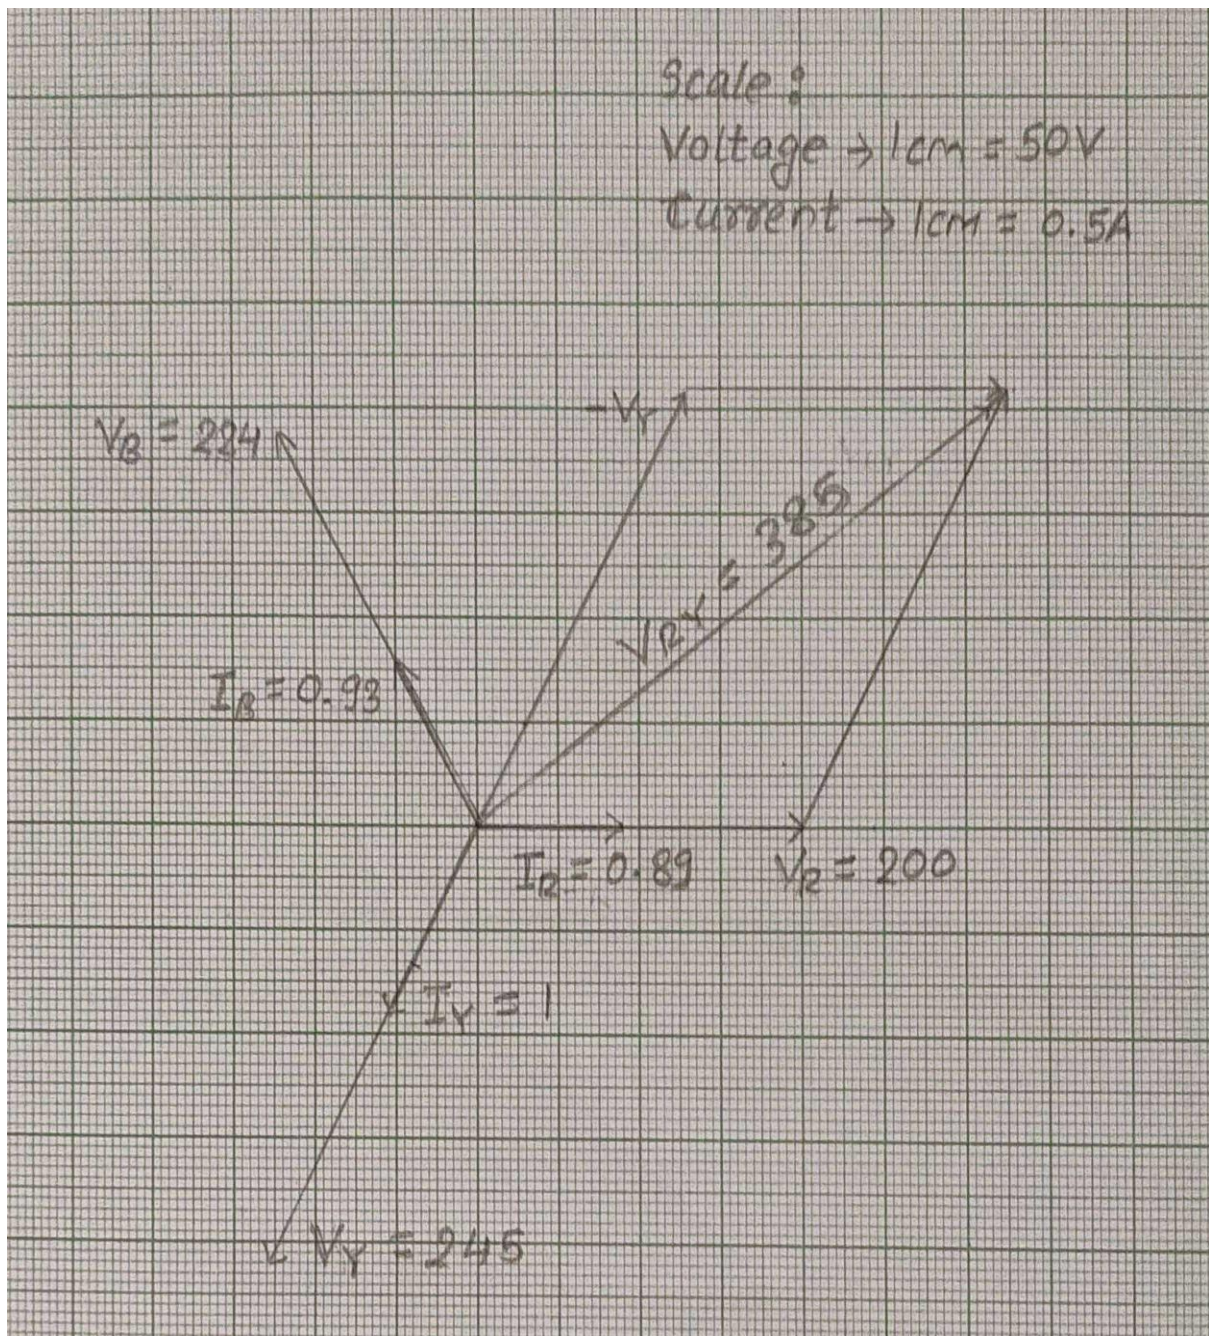 Scale :
Voltage → 1cm = 50V
Current → 1cm = 0.5A
-VY
VB = 224
VRY = 385
IB = 0.93
IR = 0.89
VR = 200
IY = 1
VY = 245